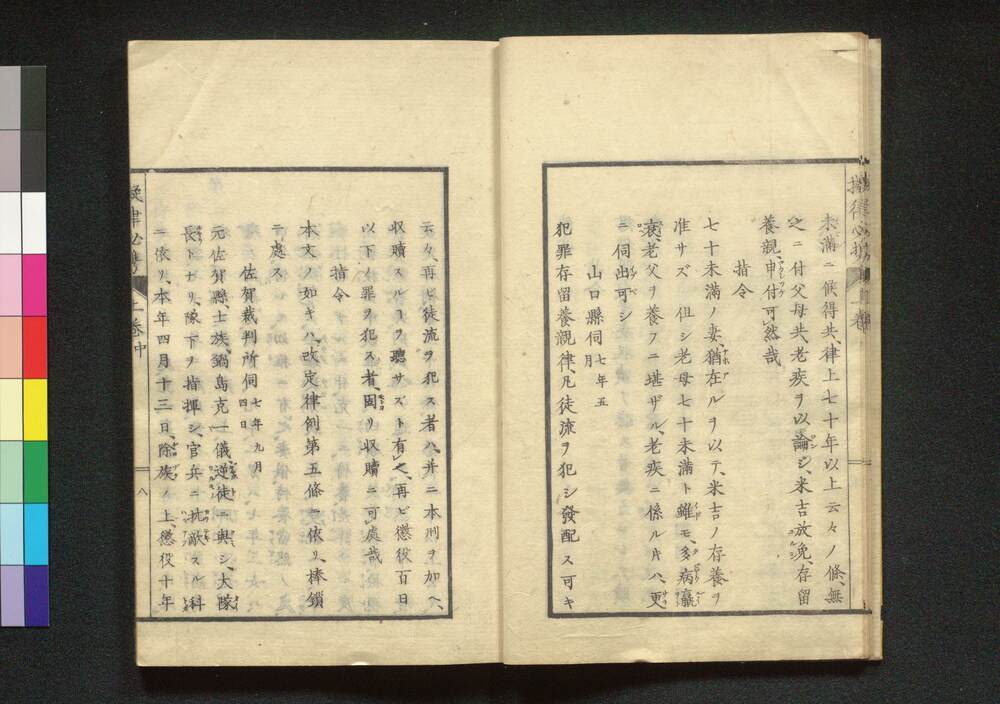 未滿ニ候得共、律上七十年以上云々ノ條、無
之ニ付父母共、老疾ヲ以論シ、米吉放免、存留
養親申付可然哉
指令
七十未滿ノ妻、猶在ルヲ以テ、米吉ノ存養ヲ
准サズ 但シ老母七十未滿ト雖モ、多病羸
衰、老父ヲ養フニ堪ザル、老疾ニ係ル片ハ、更
ニ伺出可シ
山口縣伺 七年五月
犯罪存留養親律、凡徒流ヲ犯シ發配ス可キ
云々、再ビ徒流ヲ犯ス者ハ、并ニ本刑ヲ加ヘ、
収贖スルヿヲ聽サズト有之、再ビ懲役百日
以下ノ罪ヲ犯ス者、固リ収贖ニ可處哉
指令
本文ノ如キハ、改定律例第五條ニ依リ、棒鎖
ニ處ス
佐賀裁判所伺 七年九月四日
元佐賀縣士族、鍋島克一儀逆徒ニ與シ、大隊
長トナリ、隊下ヲ指揮シ、官兵ニ抗敵スル科
ニ依リ、本年四月十三日、除族ノ上、懲役十年
上卷中
八